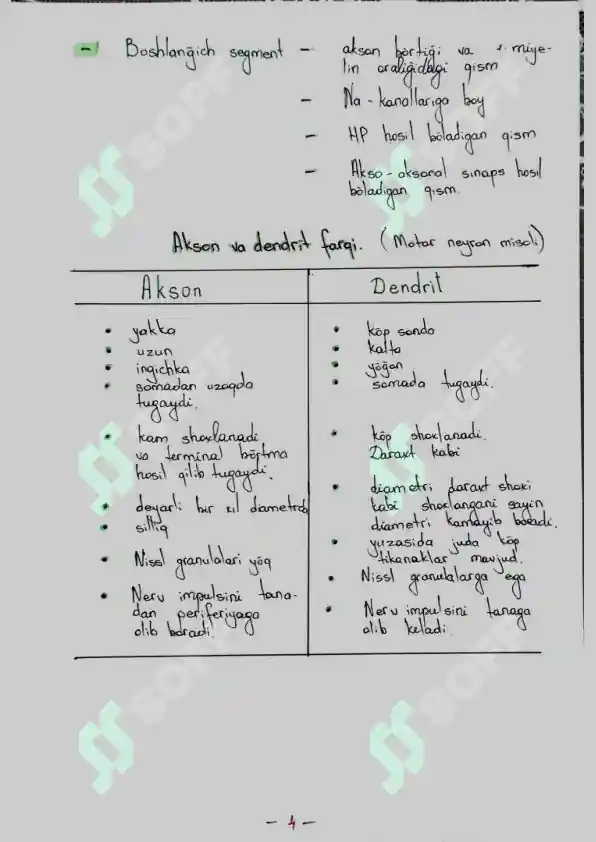 - Boshlang'ich segment - akson bo'rtig'i va 1-miye-
lin oralig'idagi qism
- Na-kanallariga boy
- HP hosil bo'ladigan qism
- Akso-aksonal sinaps hosil
bo'ladigan qism.
Akson va dendrit farqi. (Motor neyron misoli)
Akson
• yakka
• uzun
• ingichka
• somadan uzoqda
tugaydi.
• kam shoxlanadi
va terminal bo'rtma
hosil qilib tugaydi.
• deyarli bir xil diametrda
• silliq
• Nissl granulalari yo'q
• Nerv impulsini tana-
dan periferiyaga
olib boradi.
Dendrit
• ko'p sonda
• kalta
• yo'g'on
• somada tugaydi.
• ko'p shoxlanadi.
Daraxt kabi
• diametri daraxt shoxi
kabi shoxlangani sayin
diametri kamayib boradi.
• yuzasida juda ko'p
tikanaklar mavjud.
• Nissl granulalarga ega
• Nerv impulsini tanaga
olib keladi.
- 4 -
SOFF
SOFF
SOFF
SOFF
SOFF
SOFF